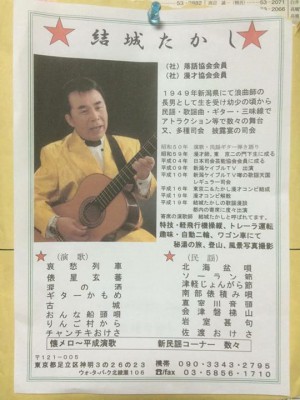 ★ 結城たかし ★
(社) 落語協会会員
(社) 漫才協会会員
1949年新潟県にて浪曲師の
長男として生を受け幼少の頃から
民謡・歌謡曲・ギター・三味線で
アトラクション等で数々の舞台
又、多種司会 披露宴の司会
昭和50年
昭和59年
平成04年 日本司会芸能協会会員に成る
平成09年
平成10年
レギュラー司会
平成16年
平成18年
平成19年
特技・軽飛行機操縦、トレーラ運転
趣味・自動二輪、ワゴン車にて
秘湯の旅、登山、風景写真撮影
★(演歌)
哀愁列車
俵星玄蕃
涙の酒
ギターかもめ
古城
おんな船頭唄
りんご村から
チャンチキおけさ
★(民謡)
北海盆唄
ソーラン節
津軽じょんがら節
南部俵積み唄
真室川音頭
会津磐梯山
岩室甚句
佐渡おけさ
懐メロ~平成演歌 新民謡コーナー 数々
〒121-005
東京都足立区神明3の26の23
ウォ・タ・パーク北綾瀬106
携帯 090-3343-2795
☎/fax 03-5856-1710